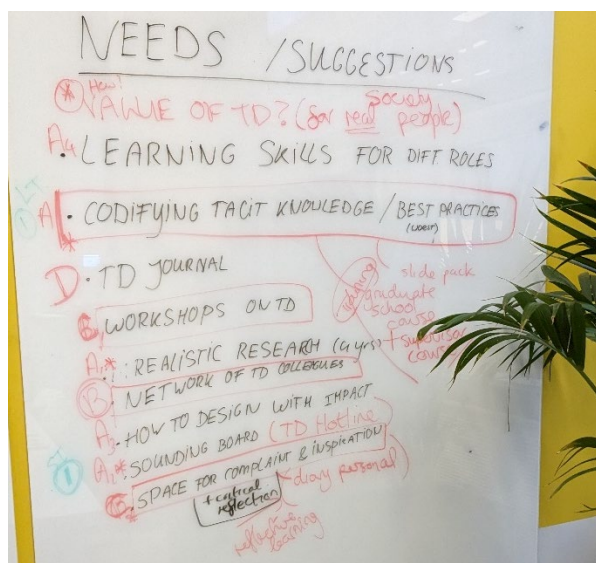 NEEDS / SUGGESTIONS
How?
* VALUE OF TD? (for real people)
Society
A4 • LEARNING SKILLS FOR DIFFT ROLES
LT
① A • CODIFYING TACIT KNOWLEDGE / BEST PRACTICES
*
D • TD JOURNAL
WORKSHOPS ON TD
slide pack
graduate
school
course
+ supervisor
course
A1* : REALISTIC RESEARCH (4 yrs)
B • NETWORK OF TD COLLEAGUES
A3 • HOW TO DESIGN WITH IMPACT
① A2* • SOUNDING BOARD (TD Hotline)
• SPACE FOR COMPLAINT & INSPIRATION
(diary personal)
+ critical
reflection
reflective
learning